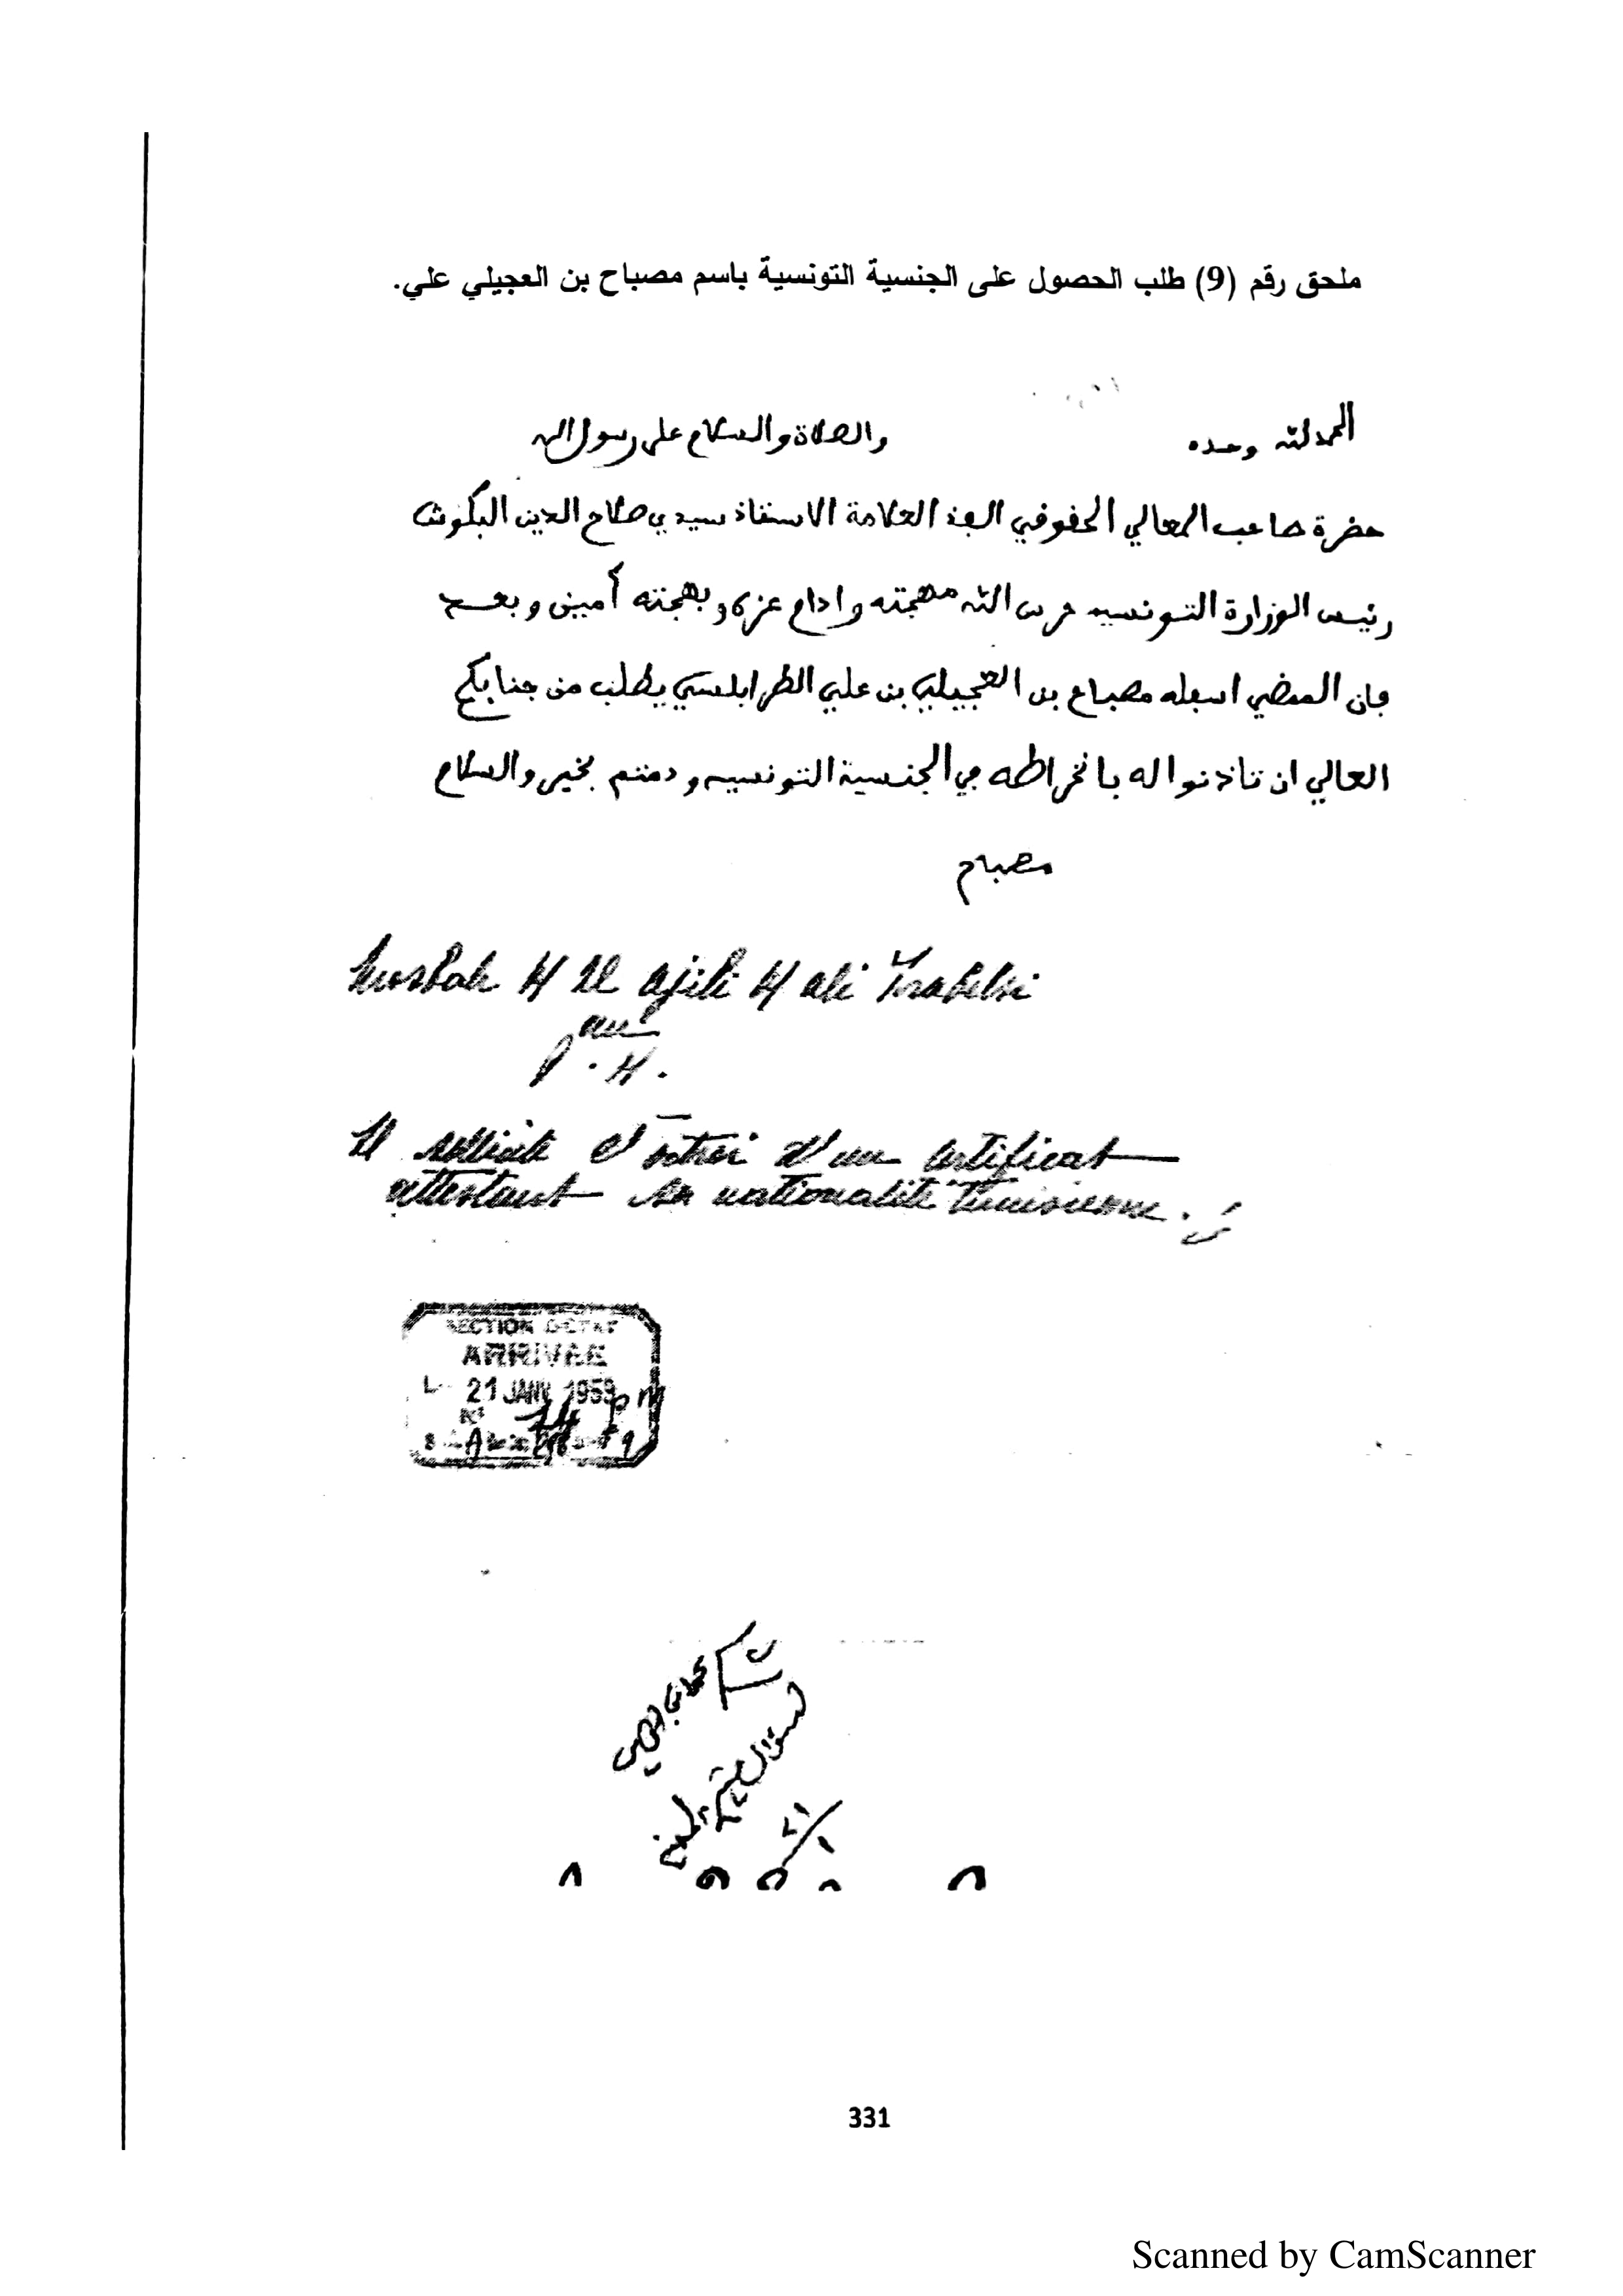 ملحق رقم (9) طلب الحصول على الجنسية التونسية باسم مصباح بن العجيلي علي.
الحمد لله وحده والصلاة والسلام على رسول الله
حضرة صاحب المعالي الحقوقي العلامة الاستاذ سيدي صلاح الدين البكوش
رئيس الوزارة التونسيه حرس الله مهجته وادام عزه وبهجته أمين وبعد
فان الممضي اسفله مصباح بن العجيلي بن علي الطرابلسي يطلب من جنابكم
العالي ان تاذنوا له بانخراطه في الجنسية التونسيه ودمتم بخير والسلام
مصباح
Mosbah H El Ajili H Ali Trabelsi
Il sollicite l'octroi d'un certificat
attestant sa nationalité Tunisienne.
SECTION D'ETAT
ARRIVEE
21 JANV
331
Scanned by CamScanner